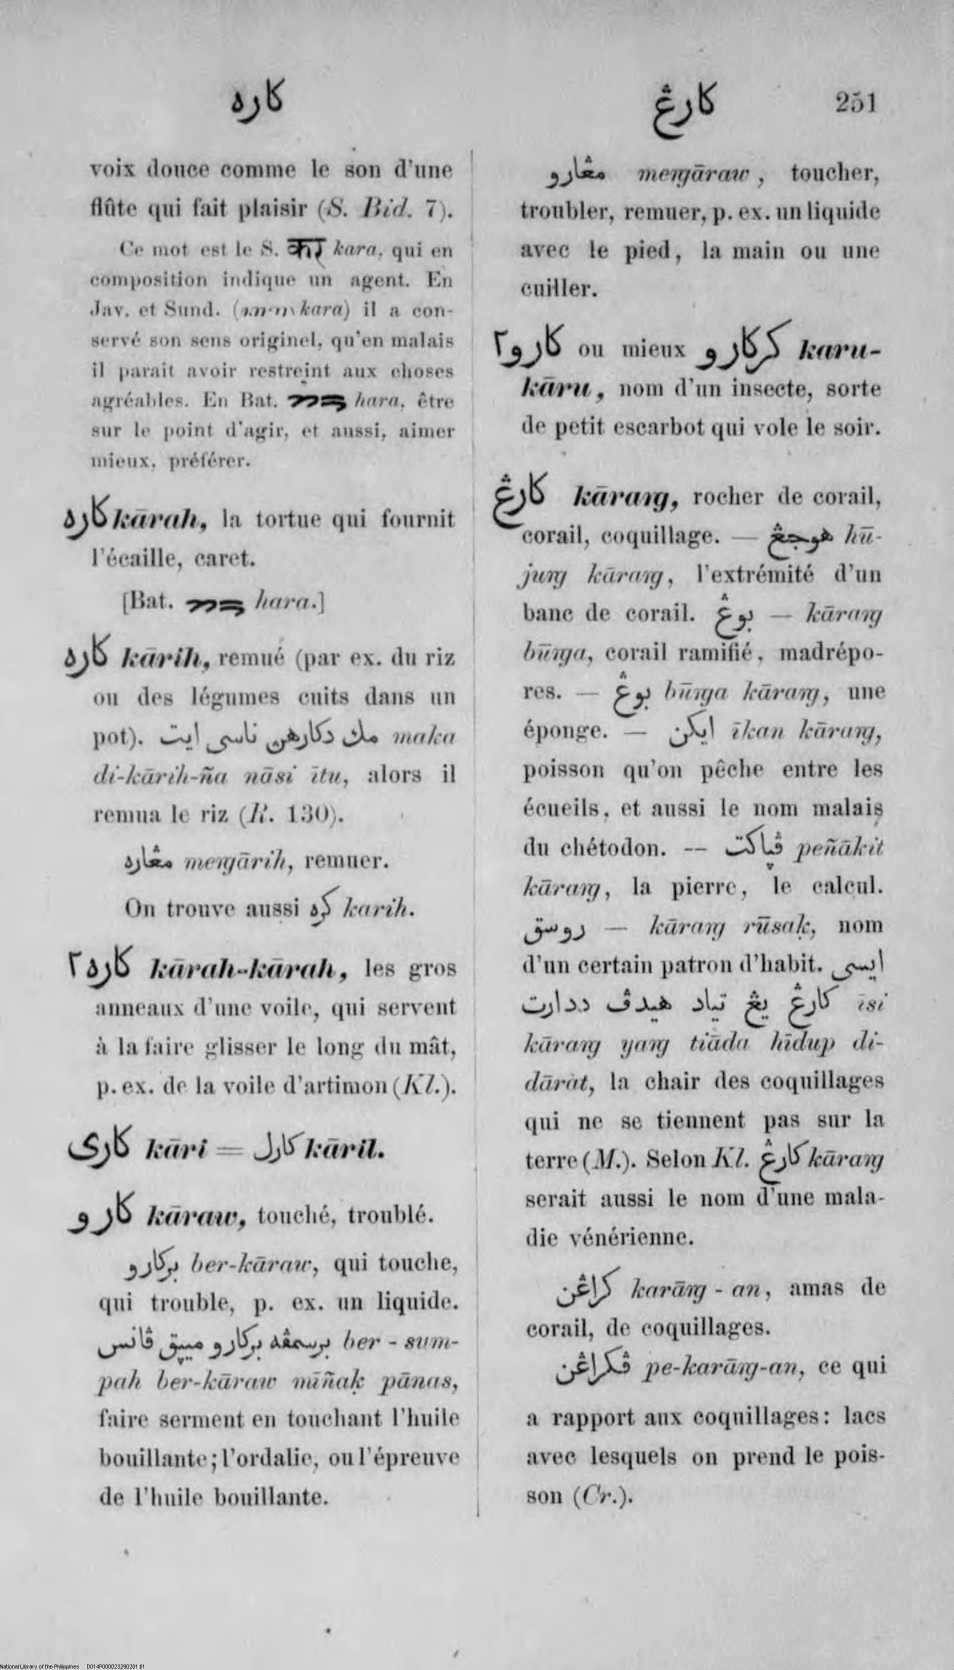 كاره
كارڠ 251
voix douce comme le son d'une
flûte qui fait plaisir (S. Bid. 7).
Ce mot est le S. कार kara, qui en
composition indique un agent. En
Jav. et Sund. ( kara) il a con-
servé son sens originel, qu'en malais
il parait avoir restreint aux choses
agréables. En Bat. hara, être
sur le point d'agir, et aussi, aimer
mieux, préférer.
كاره kārah, la tortue qui fournit
l'écaille, caret.
[Bat. hara.]
كاره kārih, remué (par ex. du riz
ou des légumes cuits dans un
pot). مك دكارهن ناسى ايت maka
di-kārih-ña nāsi ītu, alors il
remua le riz (R. 130).
مڠاره meŋārih, remuer.
On trouve aussi كره karih.
كاره٢ kārah-kārah, les gros
anneaux d'une voile, qui servent
à la faire glisser le long du mât,
p. ex. de la voile d'artimon (Kl.).
كارى kāri = كارل kāril.
كارو kāraw, touché, troublé.
بركارو ber-kāraw, qui touche,
qui trouble, p. ex. un liquide.
برسمڤه بركارو ميڽق ڤانس ber-sum-
pah ber-kāraw mīñaḳ pānas,
faire serment en touchant l'huile
bouillante; l'ordalie, ou l'épreuve
de l'huile bouillante.
مڠارو meŋāraw, toucher,
troubler, remuer, p. ex. un liquide
avec le pied, la main ou une
cuiller.
كارو٢ ou mieux كركارو karu-
kāru, nom d'un insecte, sorte
de petit escarbot qui vole le soir.
كارڠ kāraŋ, rocher de corail,
corail, coquillage. — هوجڠ hū-
juŋ kāraŋ, l'extrémité d'un
banc de corail. بوڠ — kāraŋ
būŋa, corail ramifié, madrépo-
res. — بوڠ būŋa kāraŋ, une
éponge. — ايكن īkan kāraŋ,
poisson qu'on pêche entre les
écueils, et aussi le nom malais
du chétodon. — ڤڽاكت peñākit
kāraŋ, la pierre, le calcul.
روسق — kāraŋ rūsaḳ, nom
d'un certain patron d'habit. ايسى
كارڠ يڠ تياد هيدڤ ددارت īsi
kāraŋ yaŋ tiāda hīdup di-
dārat, la chair des coquillages
qui ne se tiennent pas sur la
terre (M.). Selon Kl. كارڠ kāraŋ
serait aussi le nom d'une mala-
die vénérienne.
كراڠن karāŋ-an, amas de
corail, de coquillages.
ڤكراڠن pe-karāŋ-an, ce qui
a rapport aux coquillages: lacs
avec lesquels on prend le pois-
son (Cr.).
National Library of the Philippines